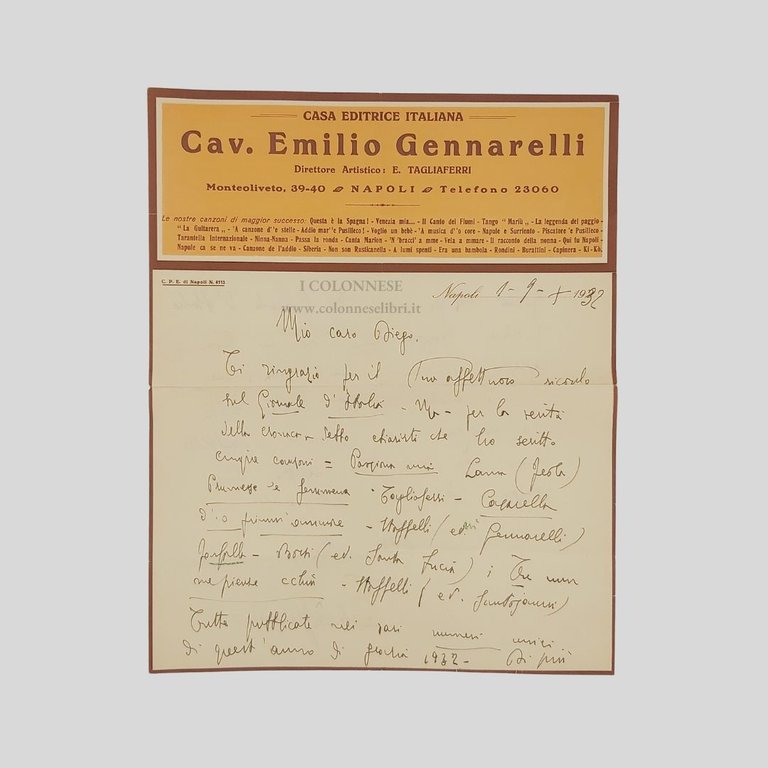 CASA EDITRICE ITALIANA
Cav. Emilio Gennarelli
Direttore Artistico: E. TAGLIAFERRI
Monteoliveto, 39-40 NAPOLI Telefono 23060
Le nostre canzoni di maggior successo: Questa è la Spagna! - Venezia mia... - Il Canto dei Fiumi - Tango "Mariù„ - La leggenda del paggio -
"La Guitarera„ - 'A canzone d''e stelle - Addio mar''e Pusilleco! - Voglio un bebè - 'A musica d''o core - Napule e Surriento - Piscatore 'e Pusilleco -
Tarantella Internazionale - Ninna-Nanna - Passa la ronda - Canta Marion - 'N 'bracci' a mme - Vela a mmare - Il racconto della nonna - Qui fu Napoli -
Napule ca se ne va - Canzone de l'addio - Siberia - Non son Rusticanella - A lumi spenti - Era una bambola - Rondini - Burattini - Capinera - Ki-Kò.
C. P. E. di Napoli N. 6713
I COLONNESE
www.colonneselibri.it
Napoli 1-9-X 1932
Mio caro Diego,
Ti ringrazio per il Tuo affettuoso ricordo
sul Giornale d'Italia - Ma - per la verità
della cronaca - debbo chiarirti che ho scritto
cinque canzoni = Passiona mia Lama
Prumesse 'e femmena Tagliaferri -
d''o primm'ammore - Staffelli (ed. Gennarelli)
- (ed. Santa Lucia) i Tre
me piense cchiù - Staffelli (ed. Santojanni)
Tutte pubblicate nei vari numeri unici
di quest'anno di 1932 - Di più